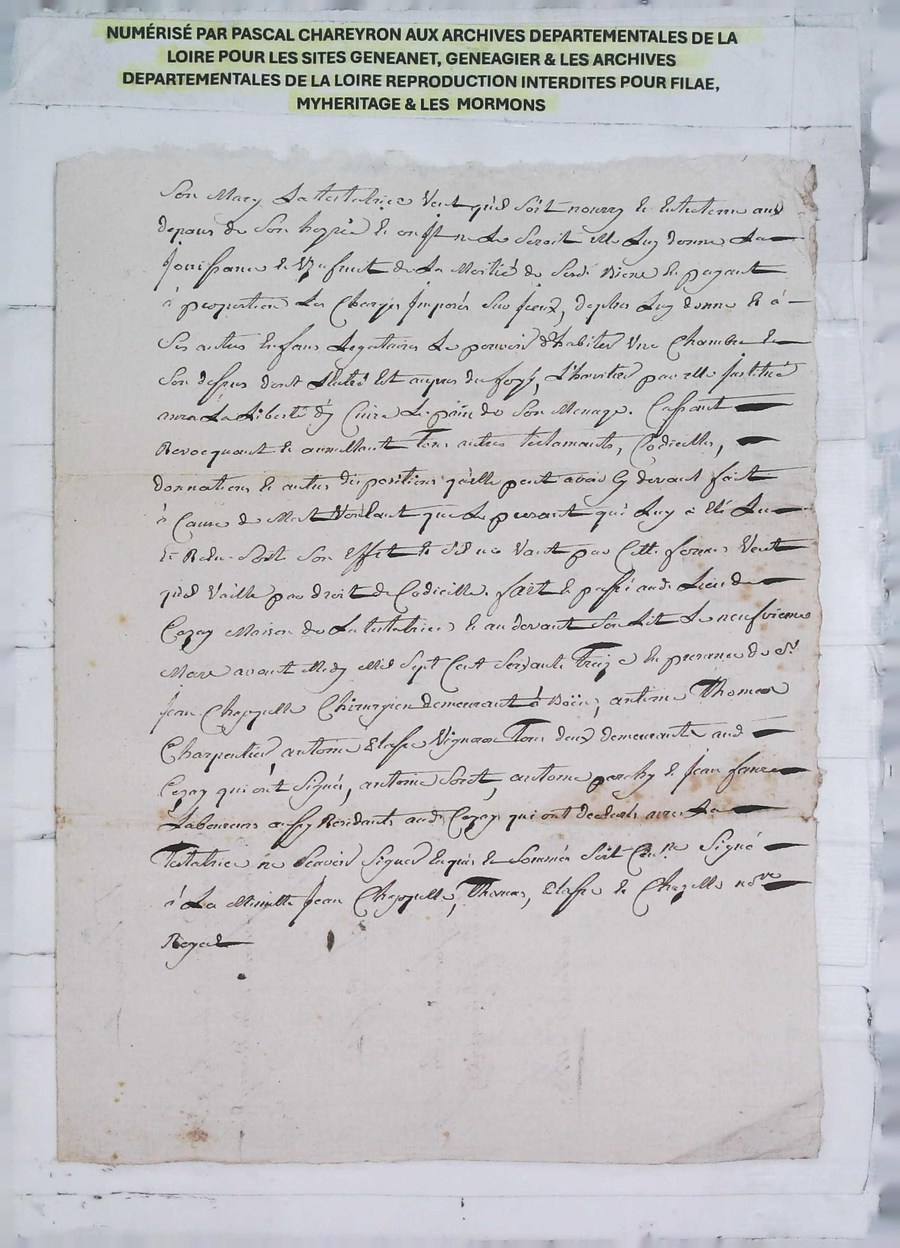 NUMÉRISÉ PAR PASCAL CHAREYRON AUX ARCHIVES DEPARTEMENTALES DE LA
LOIRE POUR LES SITES GENEANET, GENEAGIER & LES ARCHIVES
DEPARTEMENTALES DE LA LOIRE REPRODUCTION INTERDITES POUR FILAE,
MYHERITAGE & LES MORMONS
Son Mary La testatrice Veut qu'il Soit nourry Et Entretenu aux
depens de Son Et ou Il ne Le Seroit Elle Luy donne La
Jouissance Et Usufruit de La Moitié de Biens En payant
à proportion Les Charges Imposés Sur Iceux, de plus Luy donne Et à
Ses autres Enfans Legataires Le pouvoir d'habiter Une Chambre
Son dessus dont Est auprès du foyé, L'heritier par elle Institué
aura La Liberté d'y Cuire Le pain de Son Menage. Cassant
Revocquant Et annullant Tous autres testaments, Codicilles,
donnations Et autres dispositions qu'elle peut avoir Cy devant fait
à Cause de Mort Voulant que Le present qui Luy à Eté Lu
Et Relu Sorte Son Effet Et S'il ne Vaut par Cette forme Veut
qu'il Vaille par droit de Codicille. fait Et passé audit Lieu de
Cezay Maison de La testatrice Et au devant Son Lit Le neufvieme
Mars avant Midy Mil Sept Cent Soixante Treize En presence de Sr
Jean Chapuelle Chirurgien demeurant à Boën, antoine Thomas
Charpentier, antoine Vigneron Tous deux demeurants aud
Cezay qui ont Signés, antoine antoine Et Jean faure
Laboureurs aussy Residants aud Cezay qui ont declaré avec La
Testatrice ne Scavoir Signer Enquis Et Sommés Signé
à La Minutte Jean Thomas, Et Chazelle nore
Royal